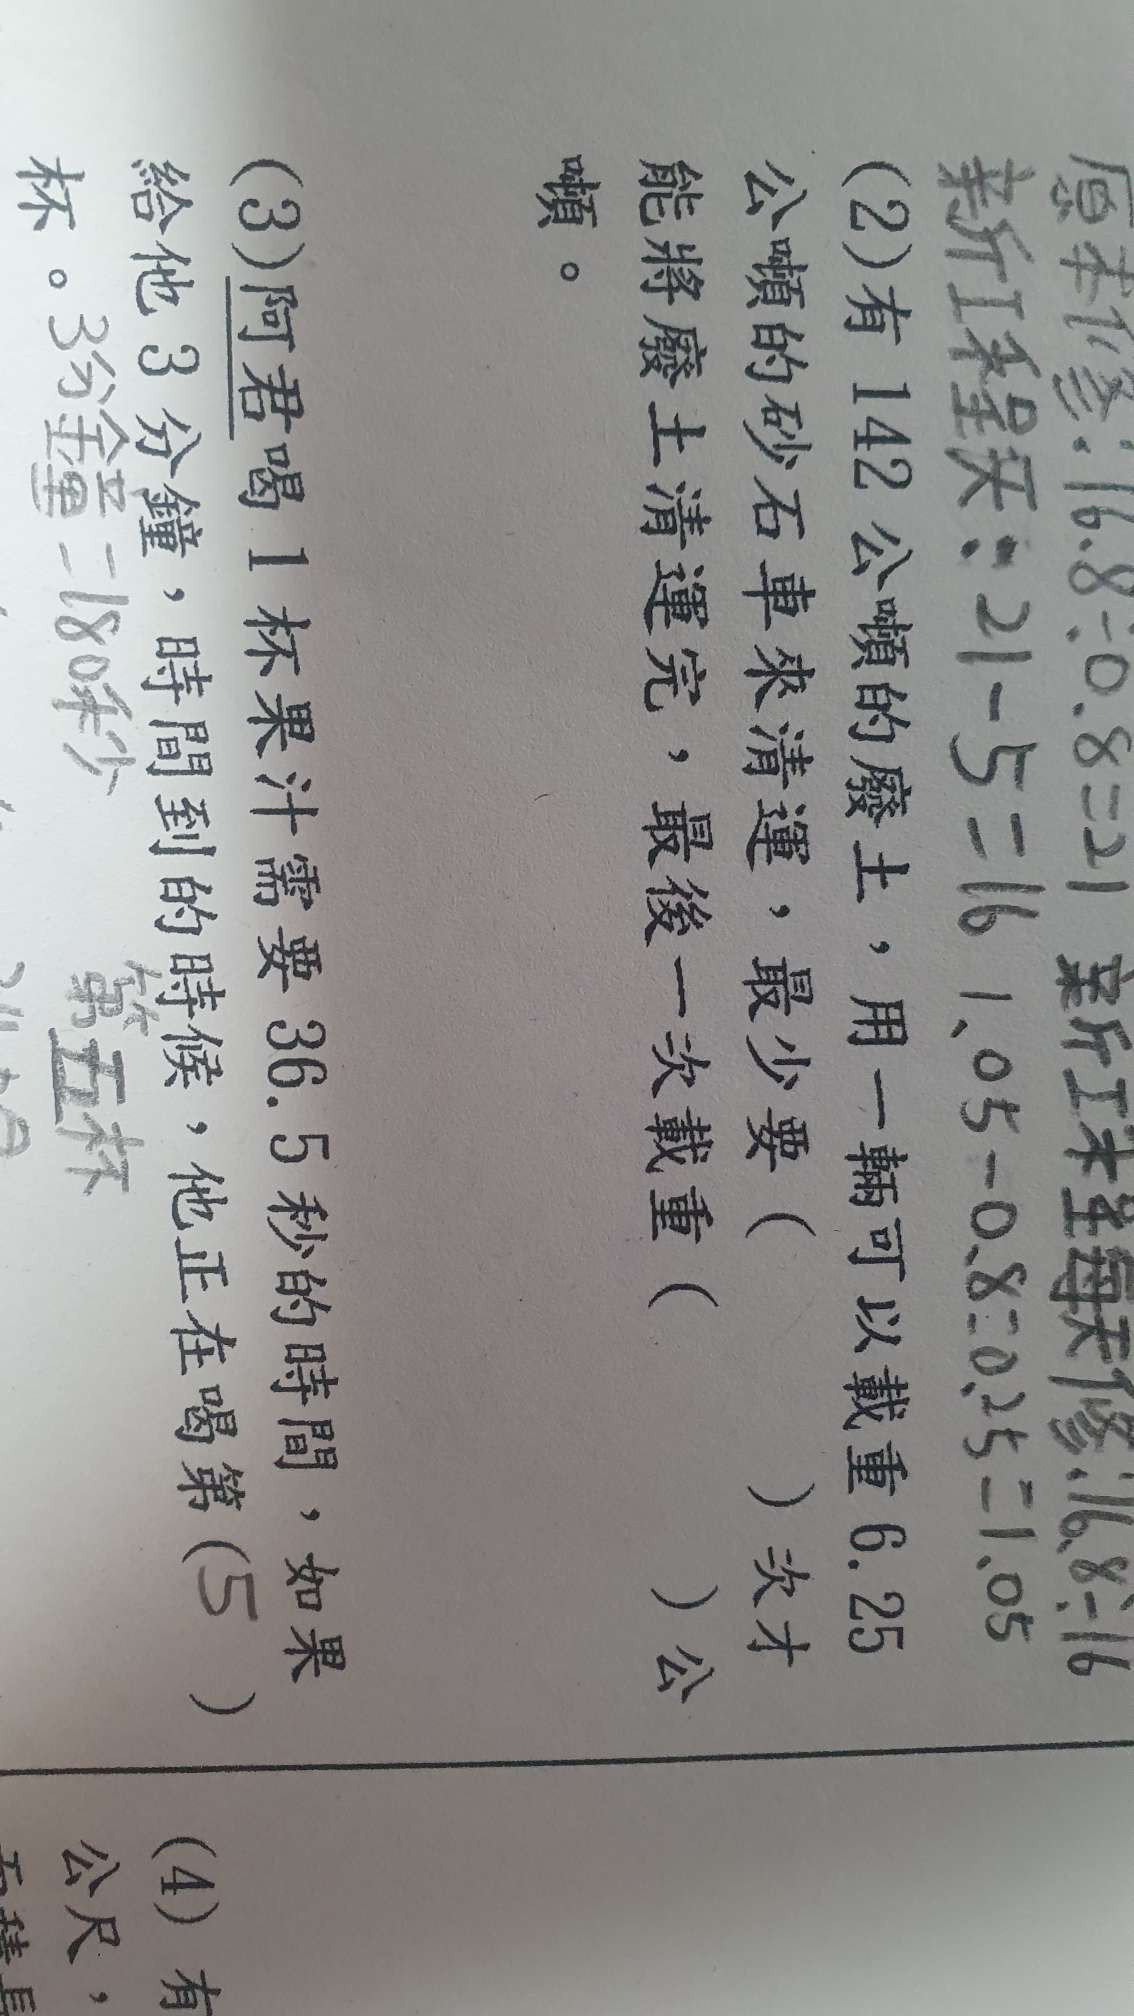 原本修:16.8÷0.8=21 新工程每天修:16.8÷16
新工程天:21-5=16 1.05-0.8=0.25=1.05
(2)有 142 公噸的廢土,用一輛可以載重 6.25
公噸的砂石車來清運,最少要( )次才
能將廢土清運完,最後一次載重( )公
噸。
(3)阿君喝 1 杯果汁需要 36.5 秒的時間,如果
給他 3 分鐘,時間到的時候,他正在喝第(5 )
杯。3分鐘=180秒 第五杯
(4) 有
公尺,